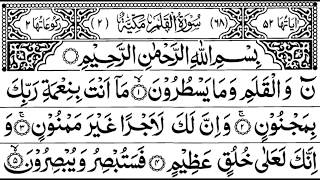 اٰيَاتُهَا ٥٢ (٦٨) سُوْرَةُ الْقَلَمِ مَكِّيَّةٌ (٢) رُكُوْعَاتُهَا ٢
بِسْمِ اللّٰهِ الرَّحْمٰنِ الرَّحِيْمِ
نٓ وَالْقَلَمِ وَمَا يَسْطُرُوْنَ ۝١ مَاۤ اَنْتَ بِنِعْمَةِ رَبِّكَ
بِمَجْنُوْنٍ ۝٢ وَاِنَّ لَكَ لَاَجْرًا غَيْرَ مَمْنُوْنٍ ۝٣
اِنَّكَ لَعَلٰى خُلُقٍ عَظِيْمٍ ۝٤ فَسَتُبْصِرُ وَيُبْصِرُوْنَ ۝٥